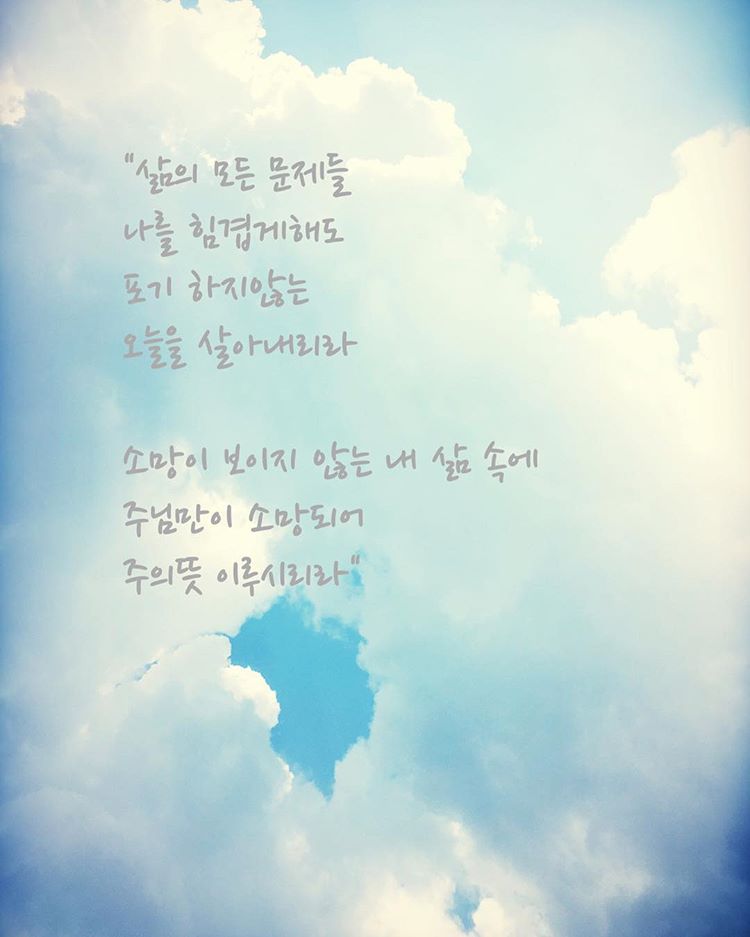 "삶의 모든 문제들
나를 힘겹게해도
포기 하지않는
오늘을 살아내리라
소망이 보이지 않는 내 삶 속에
주님만이 소망되어
주의뜻 이루시리라"